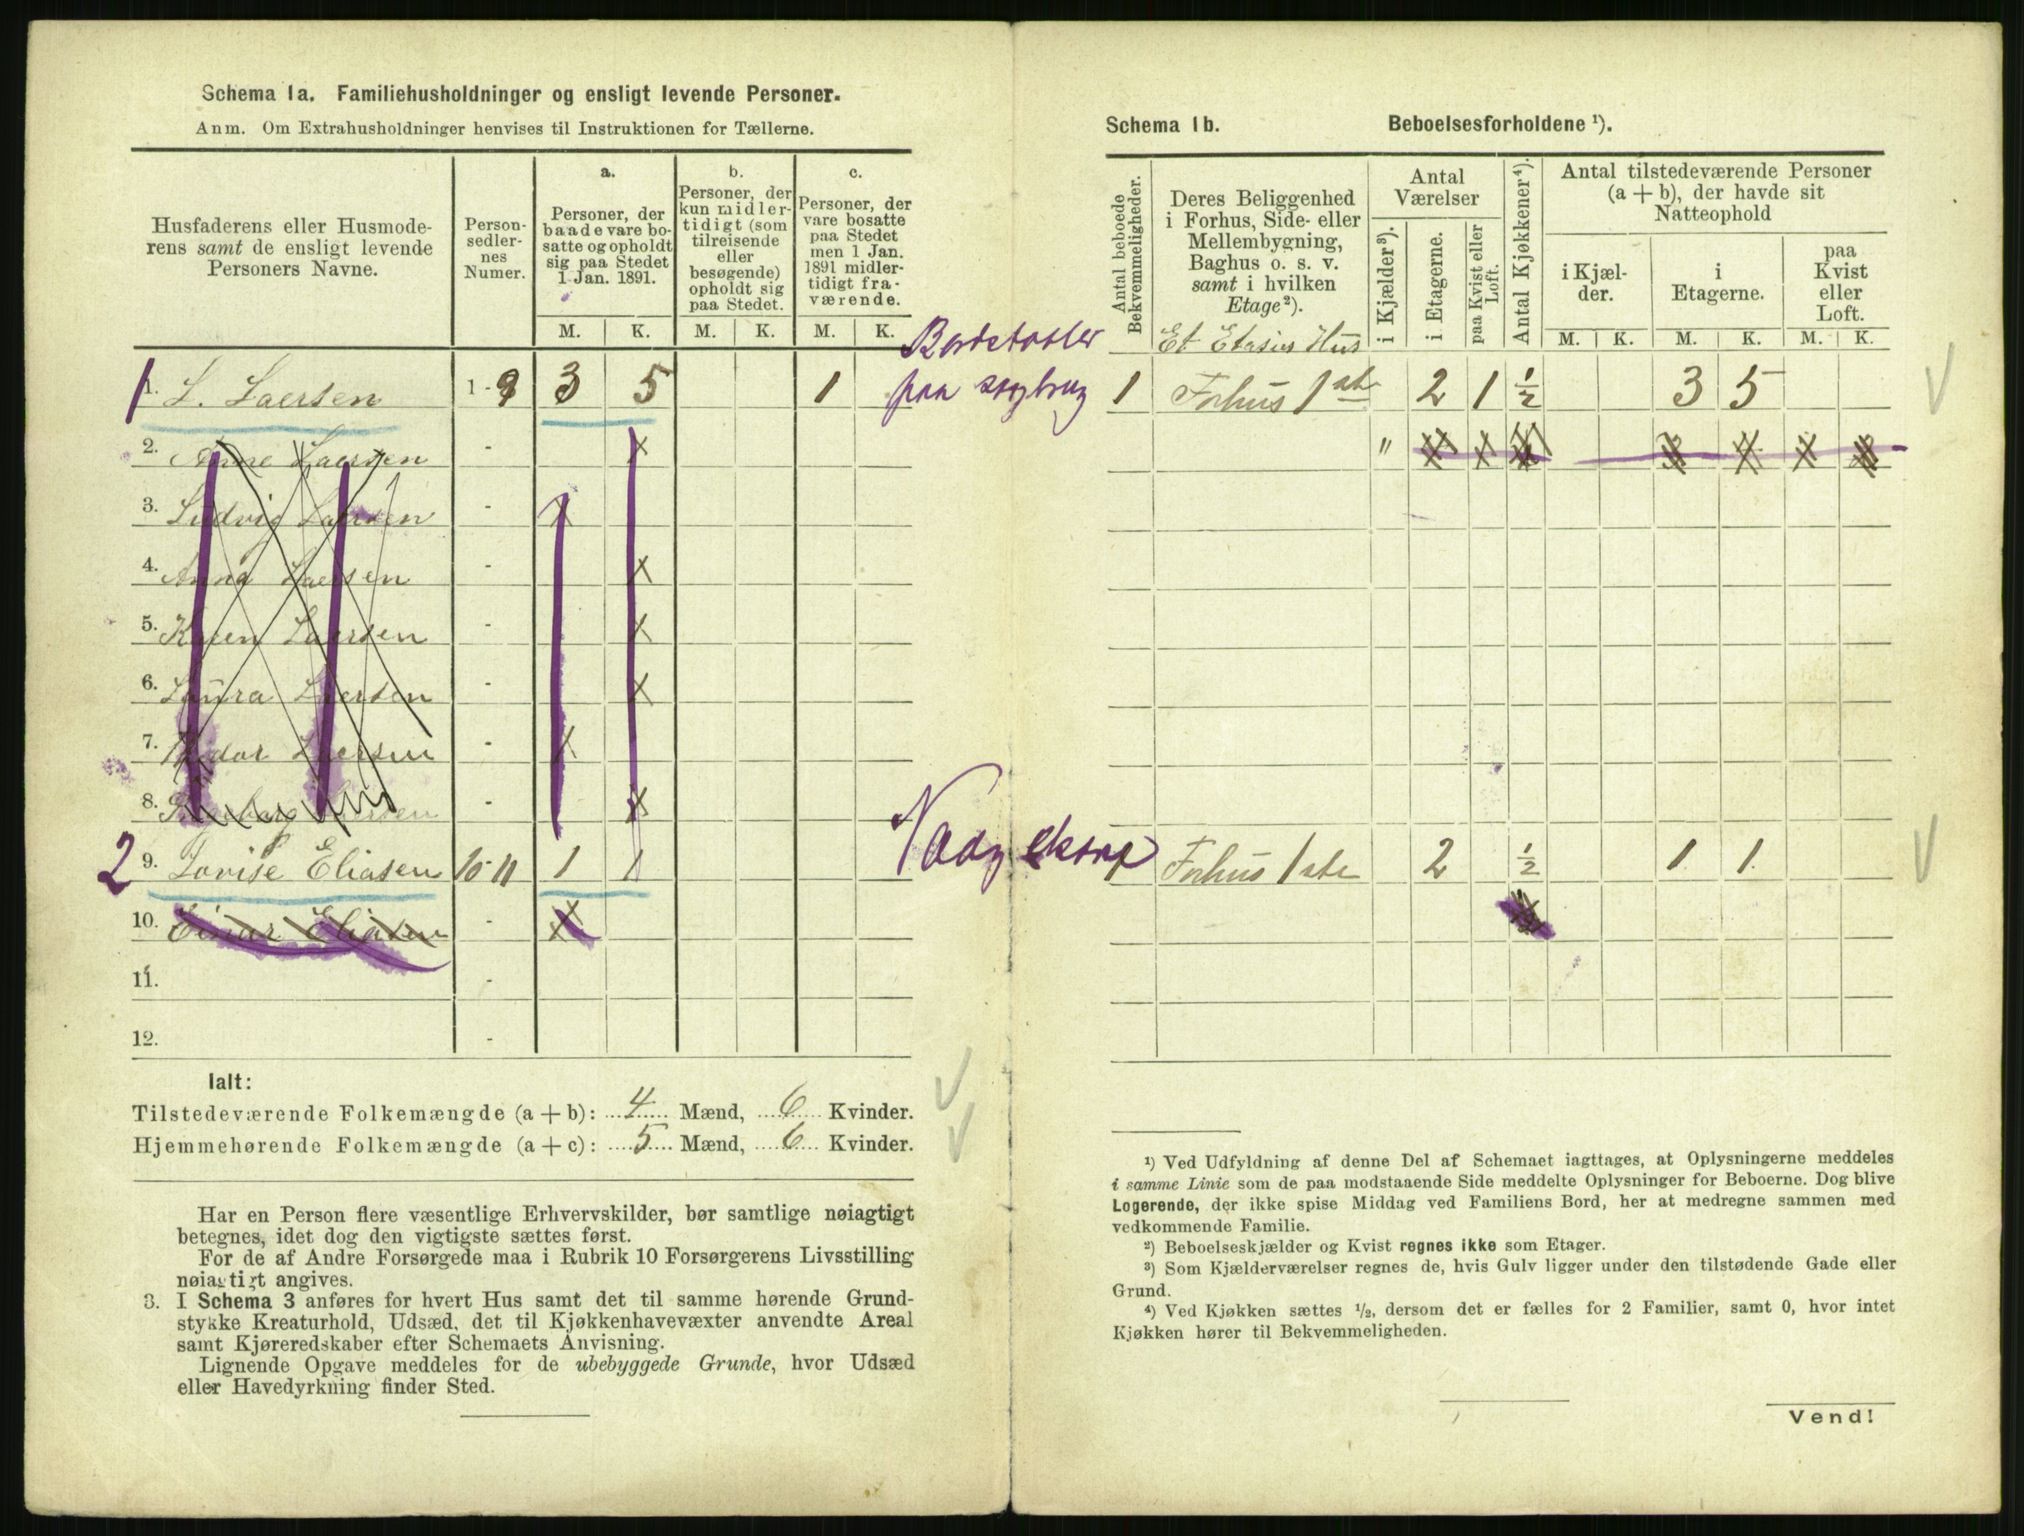 Schema 1a. Familiehusholdninger og ensligt levende Personer.
Anm. Om Extrahusholdninger henvises til Instruktionen for Tællerne.
Husfaderens eller Husmode-
rens samt de ensligt levende
Personers Navne.
Person-
sedler-
nes
Numer.
a.
Personer, der
baade vare bo-
satte og opholdt
sig paa Stedet
1 Jan. 1891.
b.
Personer, der
kun midler-
tidigt (som
tilreisende
eller
besøgende)
opholdt sig
paa Stedet.
c.
Personer, der
vare bosatte
paa Stedet
men 1 Jan.
1891 midler-
tidigt fra-
værende.
M. K. M. K. M. K.
1 1. L. Laersen 1 - 9 3 5 1
2. Anne Laersen - x
3. Ludvig Laersen - x
4. Anna Laersen - x
5. Karen Laersen - x
6. Laura Laersen - x
7. Laersen - x
8. Laersen - x
2 9. Lovise Eliasen 10-11 1 1
10. Einar Eliasen - x
11. -
12. -
Ialt:
Tilstedeværende Folkemængde (a + b): 4 Mænd, 6 Kvinder.
Hjemmehørende Folkemængde (a + c): 5 Mænd, 6 Kvinder.
Har en Person flere væsentlige Erhvervskilder, bør samtlige nøiagtigt
betegnes, idet dog den vigtigste sættes først.
For de af Andre Forsørgede maa i Rubrik 10 Forsørgerens Livsstilling
nøiagtigt angives.
3. I Schema 3 anføres for hvert Hus samt det til samme hørende Grund-
stykke Kreaturhold, Udsæd, det til Kjøkkenhavevæxter anvendte Areal
samt Kjøreredskaber efter Schemaets Anvisning.
Lignende Opgave meddeles for de ubebyggede Grunde, hvor Udsæd
eller Havedyrkning finder Sted.
Schema 1b. Beboelsesforholdene ¹).
Antal beboede
Bekvemmeligheder.
Deres Beliggenhed
i Forhus, Side- eller
Mellembygning,
Baghus o. s. v.
samt i hvilken
Etage²).
Antal
Værelser
i Kjælder³).
i Etagerne.
paa Kvist eller
Loft.
Antal Kjøkkener⁴).
Antal tilstedeværende Personer
(a + b), der havde sit
Natteophold
i Kjæl-
der.
i
Etagerne.
paa
Kvist
eller
Loft.
M. K. M. K. M. K.
Et Etasies Hus
paa
1 Forhus 1ste 2 1 ½ 3 5
"
Forhus 1ste 2 ½ 1 1
¹) Ved Udfyldning af denne Del af Schemaet iagttages, at Oplysningerne meddeles
i samme Linie som de paa modstaaende Side meddelte Oplysninger for Beboerne. Dog blive
Logerende, der ikke spise Middag ved Familiens Bord, her at medregne sammen med
vedkommende Familie.
²) Beboelseskjælder og Kvist regnes ikke som Etager.
³) Som Kjælderværelser regnes de, hvis Gulv ligger under den tilstødende Gade eller
Grund.
⁴) Ved Kjøkken sættes ½, dersom det er fælles for 2 Familier, samt 0, hvor intet
Kjøkken hører til Bekvemmeligheden.
Vend!